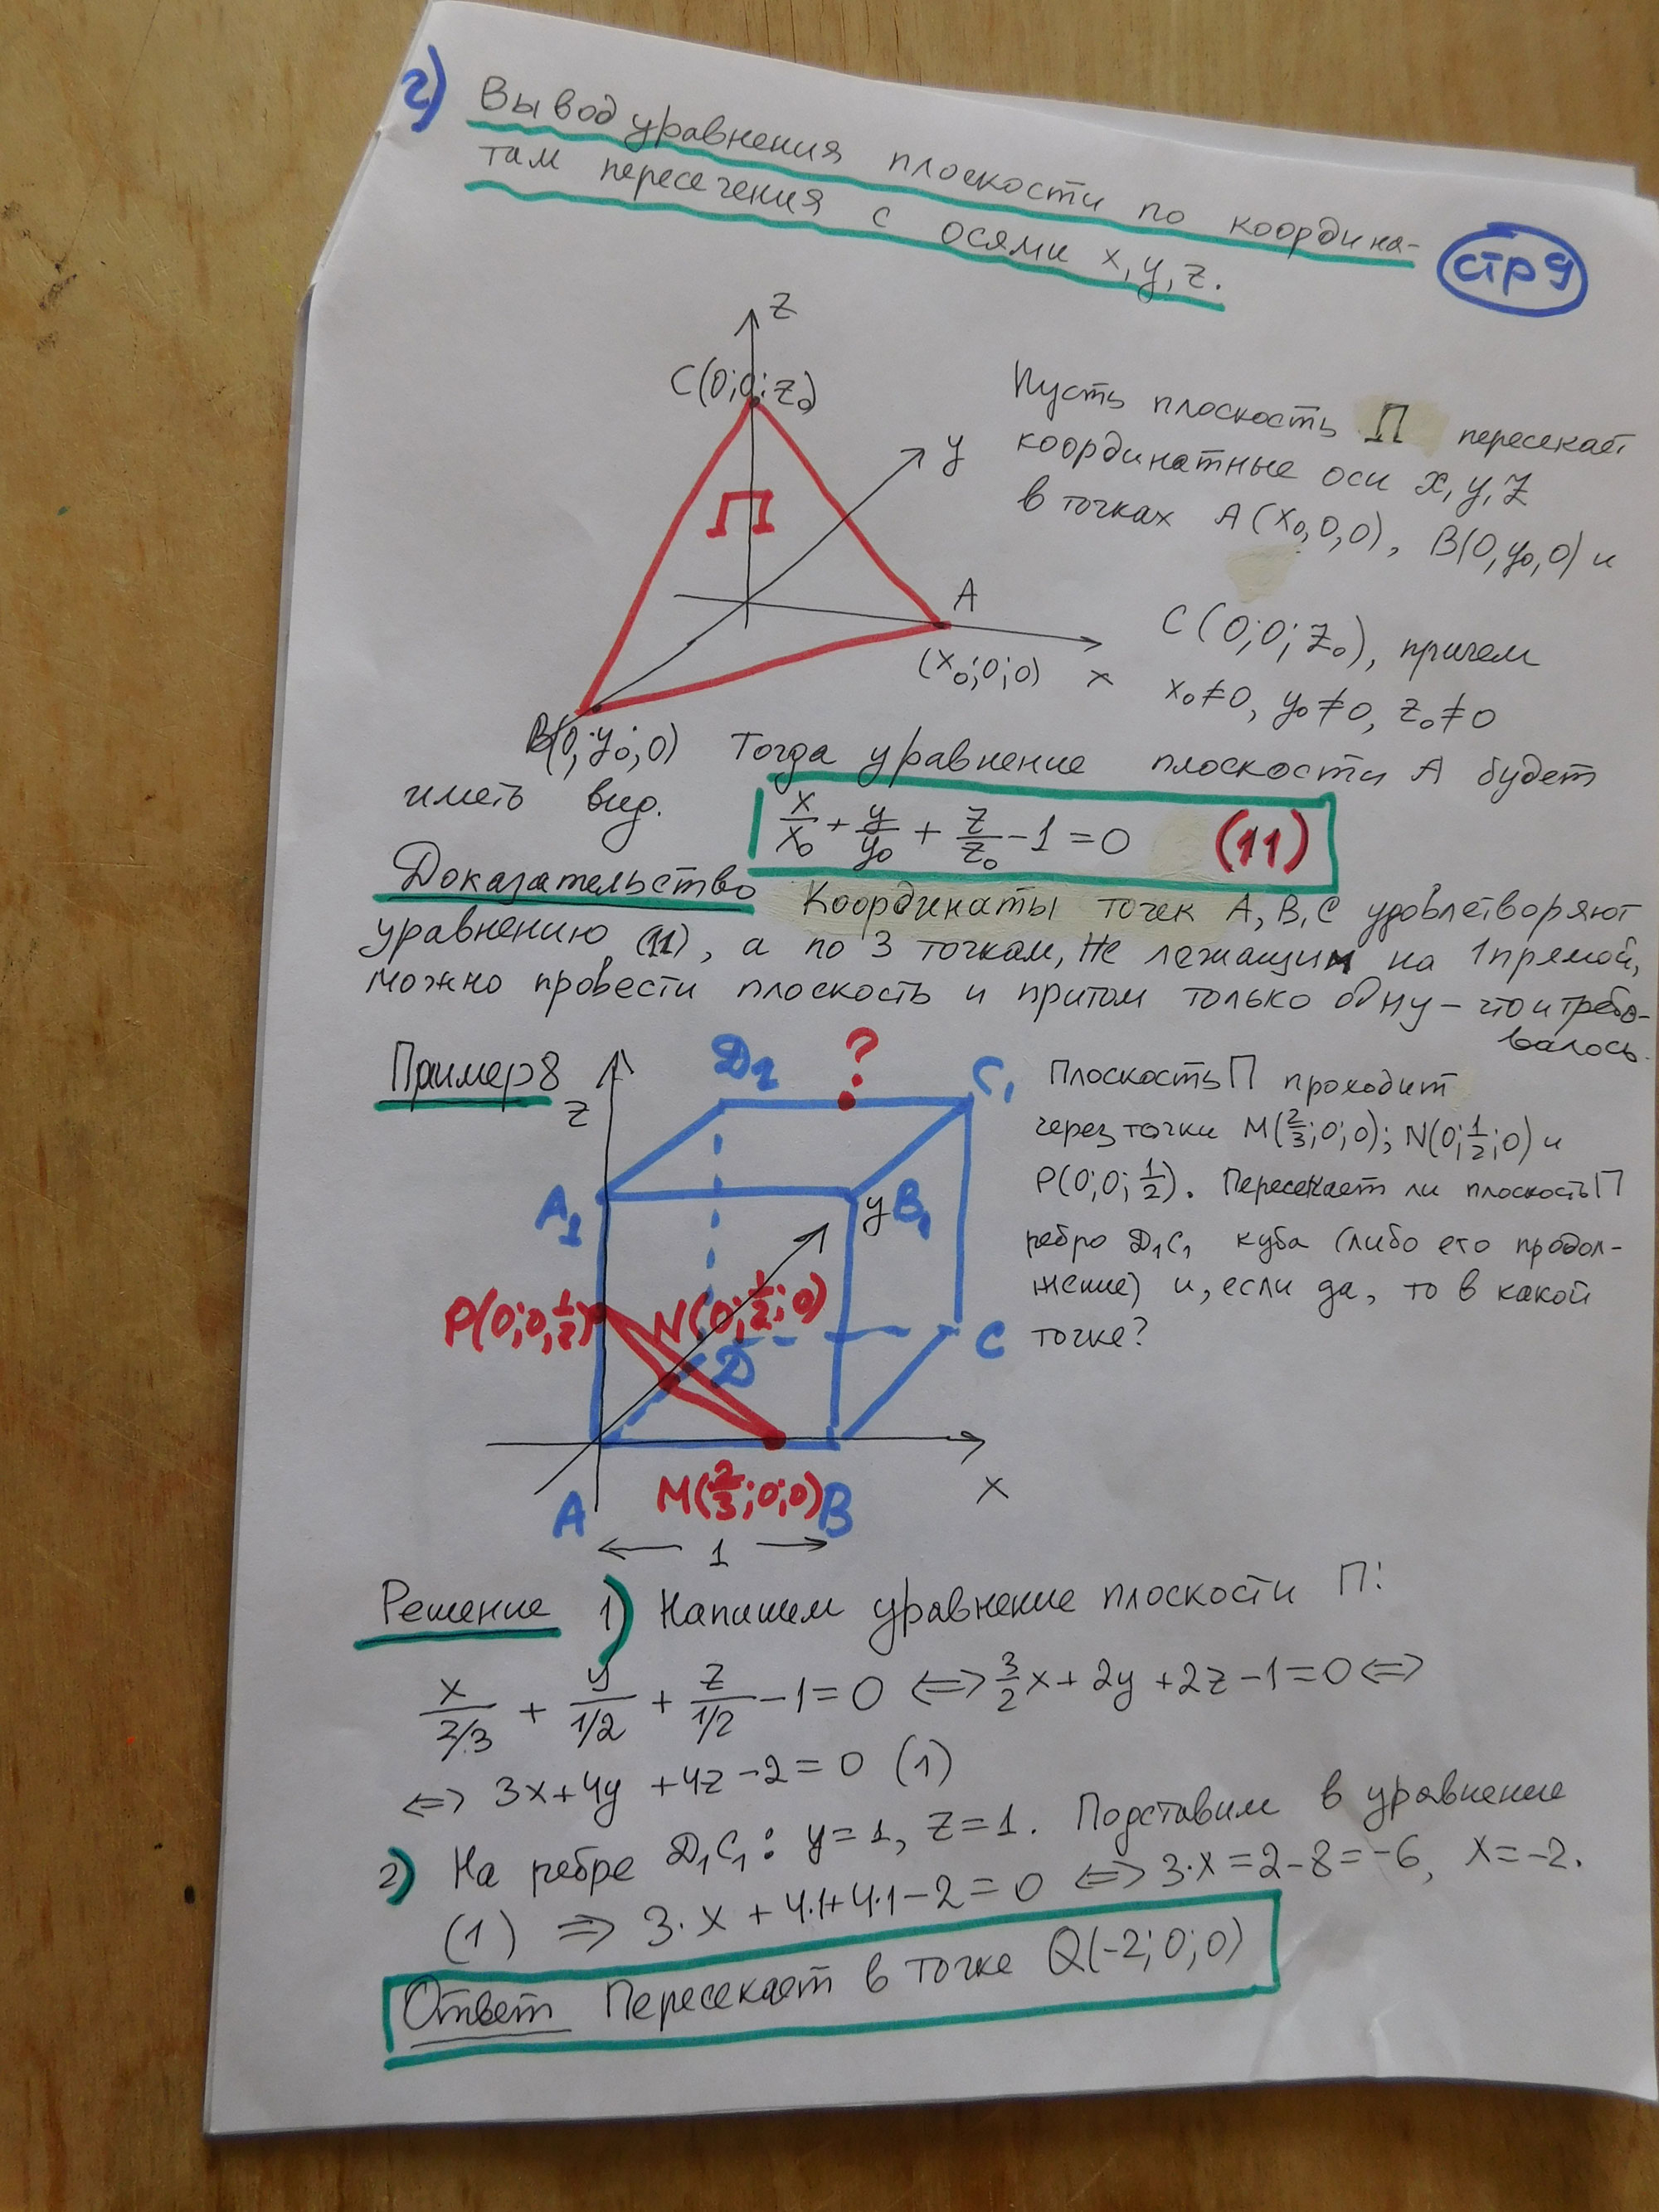 2) Вывод уравнения плоскости по координа-
там пересечения с осями x, y, z.
стр 9
z
C(0;0;z₀)
y
П
A
(x₀;0;0)
x
B(0;y₀;0)
Пусть плоскость П пересекает
координатные оси x, y, z
в точках A(x₀,0,0), B(0,y₀,0) и
C(0;0;z₀), причем
x₀≠0, y₀≠0, z₀≠0
Тогда уравнение плоскости A будет
иметь вид.
x/x₀ + y/y₀ + z/z₀ - 1 = 0 (11)
Доказательство Координаты точек A, B, C удовлетворяют
уравнению (11), а по 3 точкам, не лежащим на 1 прямой,
можно провести плоскость и притом только одну – что и требо-
валось.
Пример 8
z
D₁
?
C₁
A₁
y
B₁
P(0;0;1/2)
N(0;1/2;0)
D
C
A
M(2/3;0;0)
B
x
1
Плоскость П проходит
через точки M(2/3;0;0); N(0;1/2;0) и
P(0;0;1/2). Пересекает ли плоскость П
ребро D₁C₁ куба (либо его продол-
жение) и, если да, то в какой
точке?
Решение 1) Напишем уравнение плоскости П:
x/2/3 + y/1/2 + z/1/2 - 1 = 0 ⟺ 3/2x + 2y + 2z - 1 = 0 ⟺
⟺ 3x + 4y + 4z - 2 = 0 (1)
2) На ребре D₁C₁: y = 1, z = 1. Подставим в уравнение
(1) ⟹ 3·x + 4·1 + 4·1 - 2 = 0 ⟺ 3·x = 2 - 8 = -6, x = -2.
Ответ Пересекает в точке Q(-2;0;0)